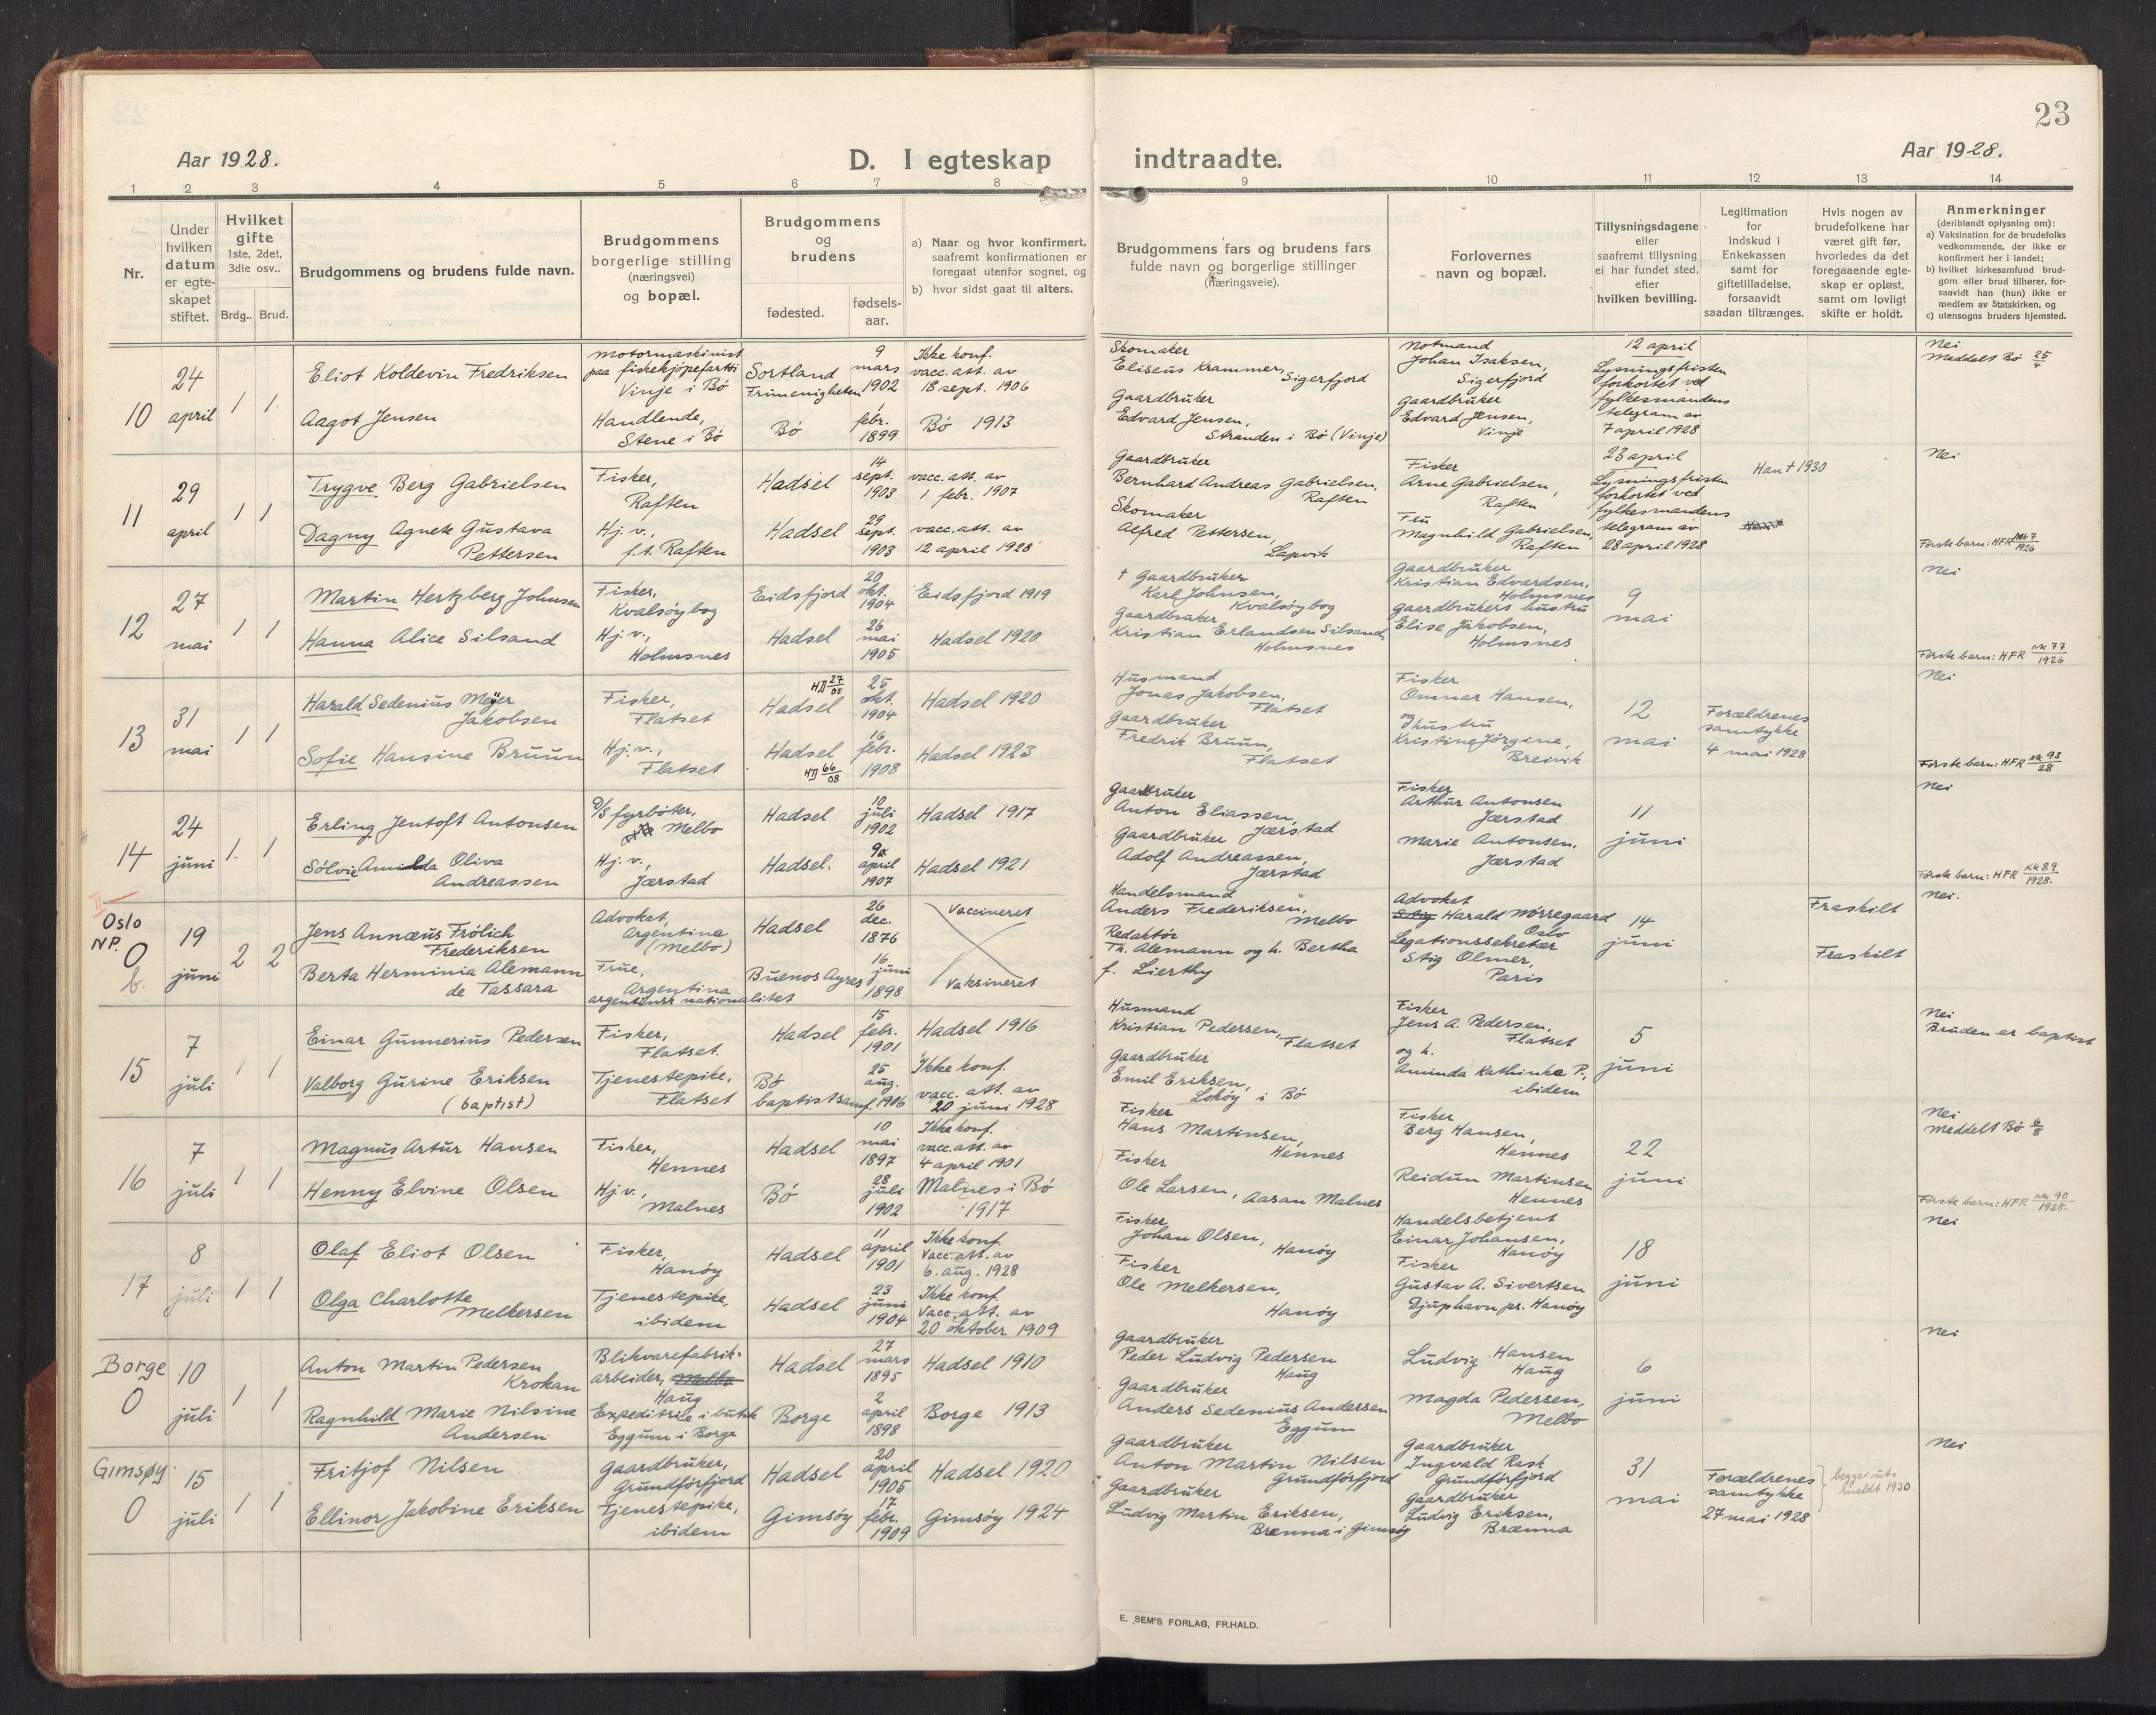 23
Aar 1928.
D. I egteskap indtraadte.
Aar 1928.
1 2 3 4 5 6 7 8 9 10 11 12 13 14
Nr.
Under
hvilken
datum
er egte-
skapet
stiftet.
Hvilket
gifte
1ste, 2det,
3die osv..
Brdg.. Brud.
Brudgommens og brudens fulde navn.
Brudgommens
borgerlige stilling
(næringsvei)
og bopæl.
Brudgommens
og
brudens
fødested.
fødsels-
aar.
a) Naar og hvor konfirmert,
saafremt konfirmationen er
foregaat utenfor sognet, og
b) hvor sidst gaat til alters.
Brudgommens fars og brudens fars
fulde navn og borgerlige stillinger
(næringsveie).
Forlovernes
navn og bopæl.
Tillysningsdagene
eller
saafremt tillysning
ei har fundet sted,
efter
hvilken bevilling.
Legitimation
for
indskud i
Enkekassen
samt for
giftetilladelse,
forsaavidt
saadan tiltrænges.
Hvis nogen av
brudefolkene har
været gift før,
hvorledes da det
foregaaende egte-
skap er opløst,
samt om lovligt
skifte er holdt.
Anmerkninger
(deriblandt oplysning om):
a) Vaksination for de brudefolks
vedkommende, der ikke er
konfirmert her i landet;
b) hvilket kirkesamfund brud-
gom eller brud tilhører, for-
saavidt han (hun) ikke er
medlem av Statskirken, og
c) utensogns bruders hjemsted.
10
24
april
1 1
Eliot Koldevin Fredriksen
Aagot Jensen
Motormaskinist
paa fiskekjøpefartøi
Vinje i Bö
Handlende,
Stene i Bö
Sortland
Frimenigheten
Bö
9
mars
1902
1
febr.
1899
Ikke konf.
vacc. att. av
18 sept. 1906
Bö 1913
Skomaker
Eliseus Krammer,
Sigerfjord
Gaardbruker
Edvard Jensen,
Stranden i Bö (Vinje)
Notmand
Johan Isaksen,
Sigerfjord
Gaardbruker
Edvard Jensen,
Vinje
12 april
Lysningsfristen
forkortet ved
fylkesmandens
telegram av
7 april 1928
Nei
Meddelt Bö 25/4
11
29
april
1 1
Trygve Berg Gabrielsen
Dagny Agnete Gustava
Pettersen
Fisker,
Raften
Hj.v.,
f.t. Raften
Hadsel
Hadsel
14
sept.
1903
29
sept.
1903
vacc. att. av
1 febr. 1907
vacc. att. av
12 april 1928
Gaardbruker
Bernhard Andreas Gabrielsen,
Raften
Skomaker
Alfred Pettersen,
Lapvik
Fisker
Arne Gabrielsen,
Raften
Fru
Magnhild Gabrielsen,
Raften
23 april
Lysningsfristen
forkortet ved
fylkesmandens
telegram av
28 april 1928
Han † 1930
Nei
Første barn: HFR Mk 7/1926
12
27
mai
1 1
Martin Hertzberg Johnsen
Hanna Alice Silsand
Fisker,
Kvalsöybog
Hj.v.,
Holmsnes
Eidsfjord
Hadsel
20
okt.
1904
26
mai
1905
Eidsfjord 1919
Hadsel 1920
† Gaardbruker
Karl Johnsen,
Kvalsöybog
Gaardbruker
Kristian Erlandsen Silsand,
Holmsnes
Gaardbruker
Kristian Edvardsen,
Holmsnes
gaardbrukers hustru
Elise Jakobsen,
Holmsnes
9
mai
Nei
Første barn: HFR Mk 77/1926
13
31
mai
1 1
Harald Sedenius Meyer
Jakobsen
Sofie Hansine Bruun
Fisker,
Flatset
Hj.v.,
Flatset
HD 27/05
Hadsel
Hadsel
HD 66/08
25
okt.
1904
16
febr.
1908
Hadsel 1920
Hadsel 1923
Husmand
Jonas Jakobsen,
Flatset
Gaardbruker
Fredrik Bruun,
Flatset
Fisker
Ommar Hansen,
og hustru
Kristine Jörgine,
Breivik
12
mai
Forældrenes
samtykke
4 mai 1928
Nei
Første barn: HFR Mk 93/28
14
24
juni
1 1
Erling Jentoft Antonsen
Sölvi Amilda Oliva
Andreassen
D/S fyrbøter,
Melbo
Hj.v.,
Jærstad
Hadsel
Hadsel.
10
juli
1902
9
april
1907
Hadsel 1917
Hadsel 1921
Gaardbruker
Anton Eliassen,
Jærstad
Gaardbruker
Adolf Andreassen,
Jærstad
Fisker
Arthur Antonsen
Jærstad
Marie Antonsen,
Jærstad
11
juni
Nei
Første barn: HFR Kk 89/1928.
Oslo
NP.
0
b.
19
juni
2 2
Jens Annæus Frölich
Frederiksen
Berta Herminia Alemann
de Tassara
Advokat,
Argentina
(Melbo)
Frue,
Argentina
argentinsk nationalitet
Hadsel
Buenos Ayres
26
dec.
1876
16
juni
1898
Vaccineret
Vaksineret
Handelsmand
Anders Frederiksen,
Melbo
Redaktör
Th. Alemann og h. Bertha
f. Lierthy
Advokat
Harald Nörregaard
Oslo
Legationssekretær
Stig Olmer,
Paris
14
juni
Fraskilt
Fraskilt
Nei.
15
7
juli
1 1
Einar Gunnerius Pedersen
Valborg Gurine Eriksen
(baptist)
Fisker,
Flatset.
Tjenestepike,
Flatset
Hadsel
Bö
baptistsamf.
15
febr.
1901
25
aug.
1906
Hadsel 1916
Ikke konf.
vacc. att. av
20 juni 1928
Husmand
Kristian Pedersen,
Flatset
Gaardbruker
Emil Eriksen,
Lokøy i Bö
Fisker
Jens A. Pedersen,
Flatset
og h.
Aminda Kathinka P.,
ibidem
5
juni
Nei
Bruden er baptist
16
7
juli
1 1
Magnus Artur Hansen
Henny Elvine Olsen
Fisker,
Hennes
Hj.v.,
Malnes
Hadsel
Bö
10
mai
1897
28
juli
1902
Ikke konf.
vacc. att. av
4 april 1901
Malnes i Bö
1917
Fisker
Hans Martinsen,
Hennes
Fisker
Ole Larsen, Aasan Malnes
Fisker
Berg Hansen,
Hennes
Reidun Martinsen
Hennes
22
juni
Nei
Meddelt Bö 6/8
Første barn: HFR Mk 90/1928.
17
8
juli
1 1
Olaf Eliot Olsen
Olga Charlotte
Melkersen
Fisker,
Hanöy
Tjenestepike,
ibidem
Hadsel
Hadsel
11
april
1901
23
juni
1904
Ikke konf.
Vacc. att. av
6. aug. 1928
Ikke konf.
Vacc. att. av
20 oktober 1909
Fisker
Johan Olsen,
Hanöy
Fisker
Ole Melkersen,
Hanöy
Handelsbetjent
Einar Johansen,
Hanöy
Fisker
Gustav A. Sivertsen
Djuphavn pr. Hanöy
18
juni
Nei
Borge
0
10
juli
1 1
Anton Martin Pedersen
Krokan
Ragnhild Marie Nilsine
Andersen
Blikvarefabrik-
arbeider, Melbo
Haug
Expeditrice i butik
Eggum i Borge
Hadsel
Borge
27
mars
1895
2
april
1898
Hadsel 1910
Borge 1913
Gaardbruker
Peder Ludvig Pedersen
Haug
Gaardbruker
Anders Sedenius Andersen
Eggum
Ludvig Hansen
Haug
Magda Pedersen,
Melbo
6
juni
Nei
Gimsøy
0
15
juli
1 1
Fritjof Nilsen
Ellinor Jakobine Eriksen
Gaardbruker,
Grundförfjord
Tjenestepike,
ibidem
Hadsel
Gimsöy
20
april
1905
17
febr.
1909
Hadsel 1920
Gimsöy 1924
Gaardbruker
Anton Martin Nilsen
Grundförfjord
Gaardbruker
Ludvig Martin Eriksen,
Brenna i Gimsöy
Gaardbruker
Ingvald Rask
Grundförfjord
Gaardbruker
Ludvig Eriksen,
Brænna
31
mai
Forældrenes
samtykke
27 mai 1928
begge ut-
meldt 1930
Nei
E. SEM'S FORLAG, FR.HALD.